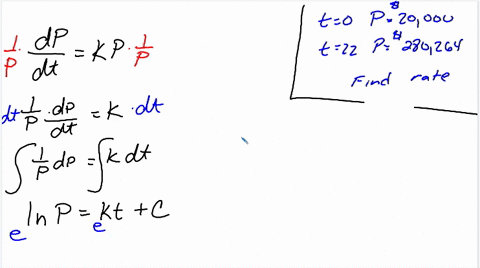 1/P · dP/dt = KP · 1/P
dt 1/P · dP/dt = K · dt
∫ 1/P dP = ∫ K dt
e ln P = e kt + C
t=0 P=$20,000
t=22 P=$280,264
Find rate